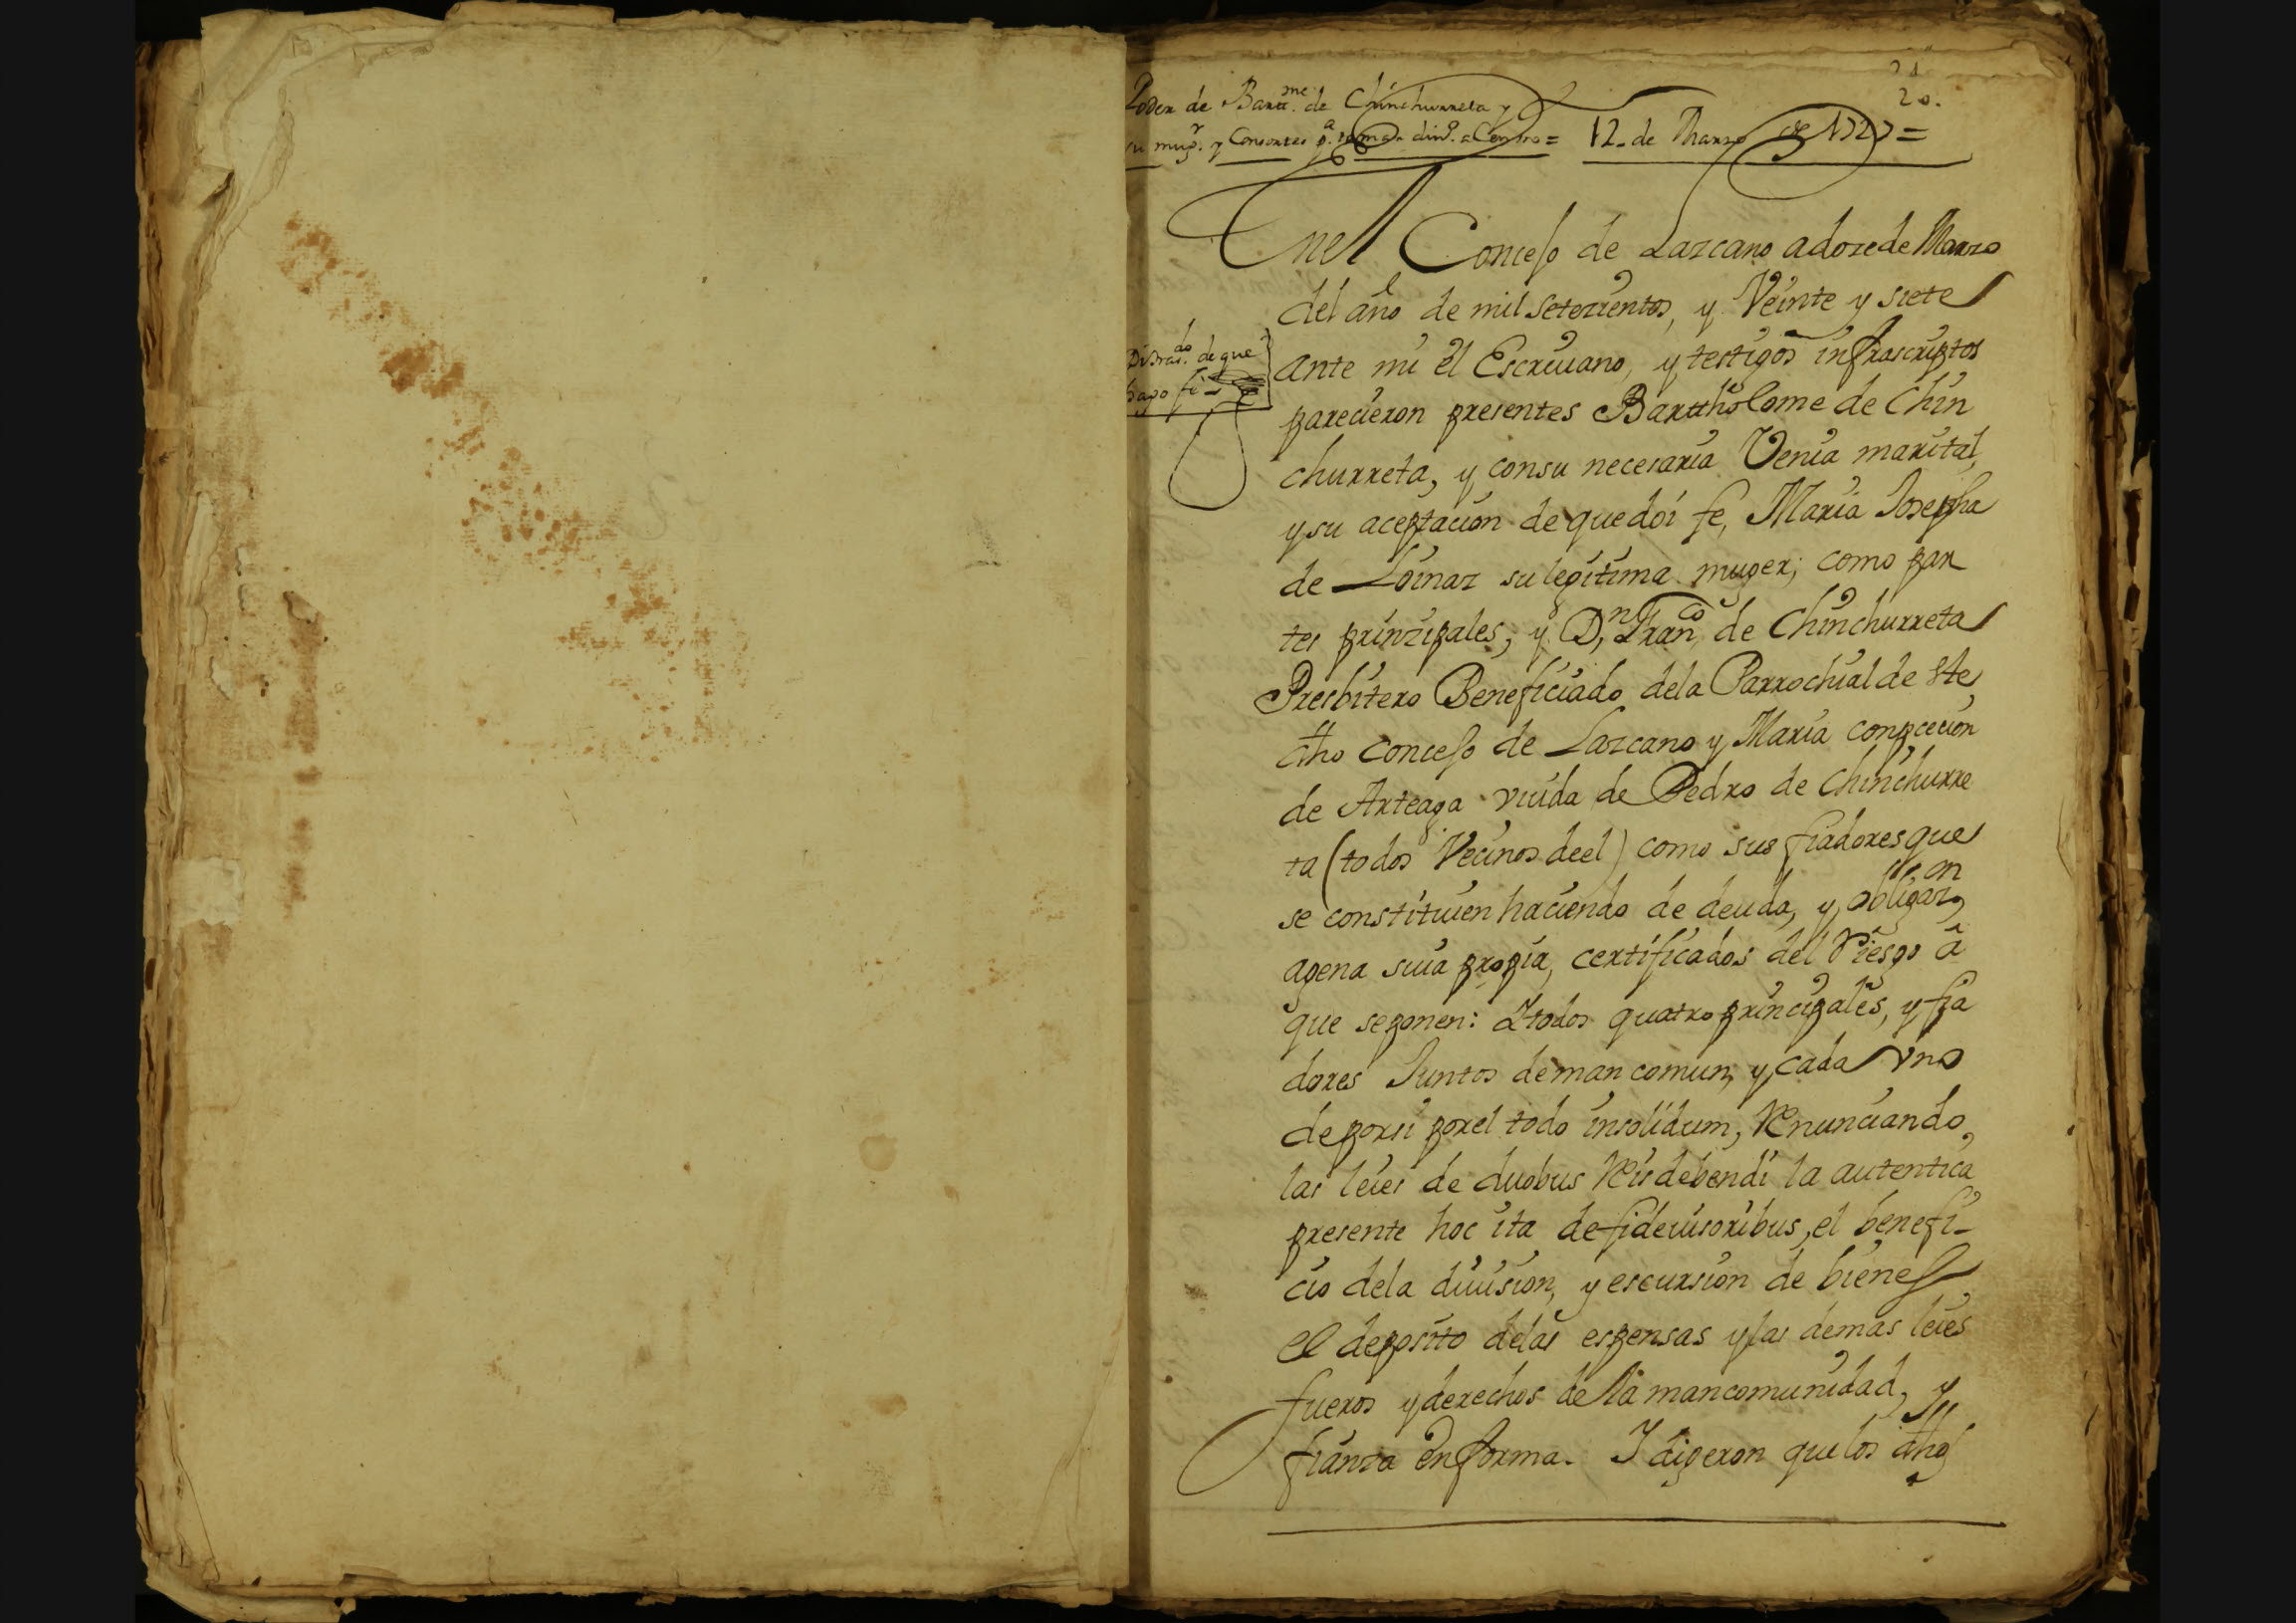 21
20.
Poder de Bartt.me de Chinchurreta y
su mug.r y Consortes p.a tomar din.o a Censo = 12 de Marzo de 1727 =
En el Concejo de Lazcano a doze de Marzo
del año de mil setezientos, y Veinte y siete
ante mi el Escriuano, y testigos infrascriptos
parecieron presentes Barttholome de Chin
churreta, y consu necesaria Venia marital,
y su aceptacion de que doi fe, Maria Josepha
de Loinaz su legitima muger; como par
tes prinzipales, y D.n Fran.co de Chinchurreta
Presbitero Beneficiado dela Parrochial de este
dho concejo de Lazcano y Maria Conpcecion
de Arteaga viuda de Pedro de Chinchurre
ta (todos Vecinos deel) como sus fiadores que
se constituien haciendo de deuda, y obligaz.on
agena suia propia, certificados del Riesgo â
que seponen: I todos quatro principales, y fia
dores Juntos deman comun, y cada vno
deporsi porel todo insolidum, Renunciando,
las leies de duobus Reis debendi la autentica
presente hoc ita de fideiusoribus, el benefi-
cio dela diuision, y escursion de bienes
el deposito delas espensas y las demas leies
fueros y derechos de la mancomunidad, y
fianza en forma. I digeron que los dhos
Disras.do de que
hago fe